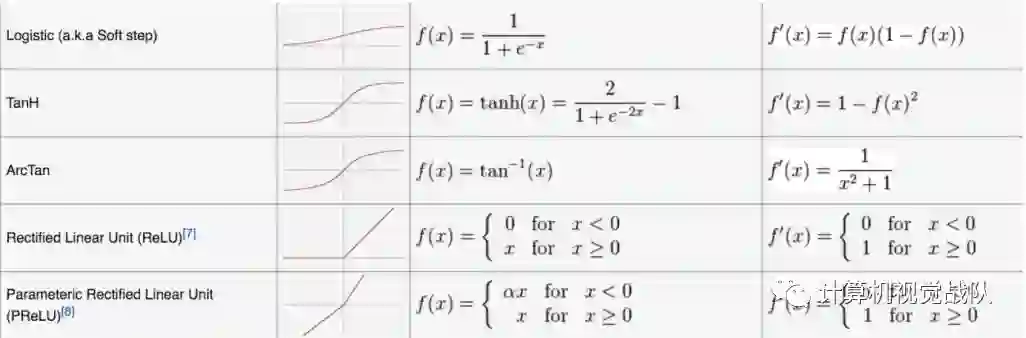 Logistic (a.k.a Soft step) f(x) = 1 / (1 + e^{-x}) f′(x) = f(x)(1 − f(x))
TanH f(x) = tanh(x) = 2 / (1 + e^{-2x}) − 1 f′(x) = 1 − f(x)^2
ArcTan f(x) = tan^{-1}(x) f′(x) = 1 / (x^2 + 1)
Rectified Linear Unit (ReLU)[7] f(x) = { 0 for x < 0 f′(x) = { 0 for x < 0
x for x ≥ 0 1 for x ≥ 0
Parameteric Rectified Linear Unit (PReLU)[8] f(x) = { αx for x < 0 f′(x) = {
x for x ≥ 0 1 for x ≥ 0
计算机视觉战队